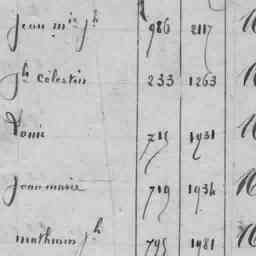 jean mie jh 986 2117
jh célestin 233 1263
715 1931
jean marie 719 1934
mathurin jh 795 1981